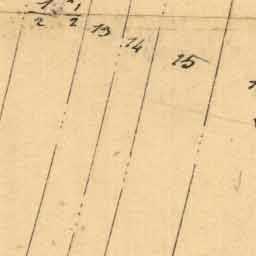 1 1
2 2
13
14
15